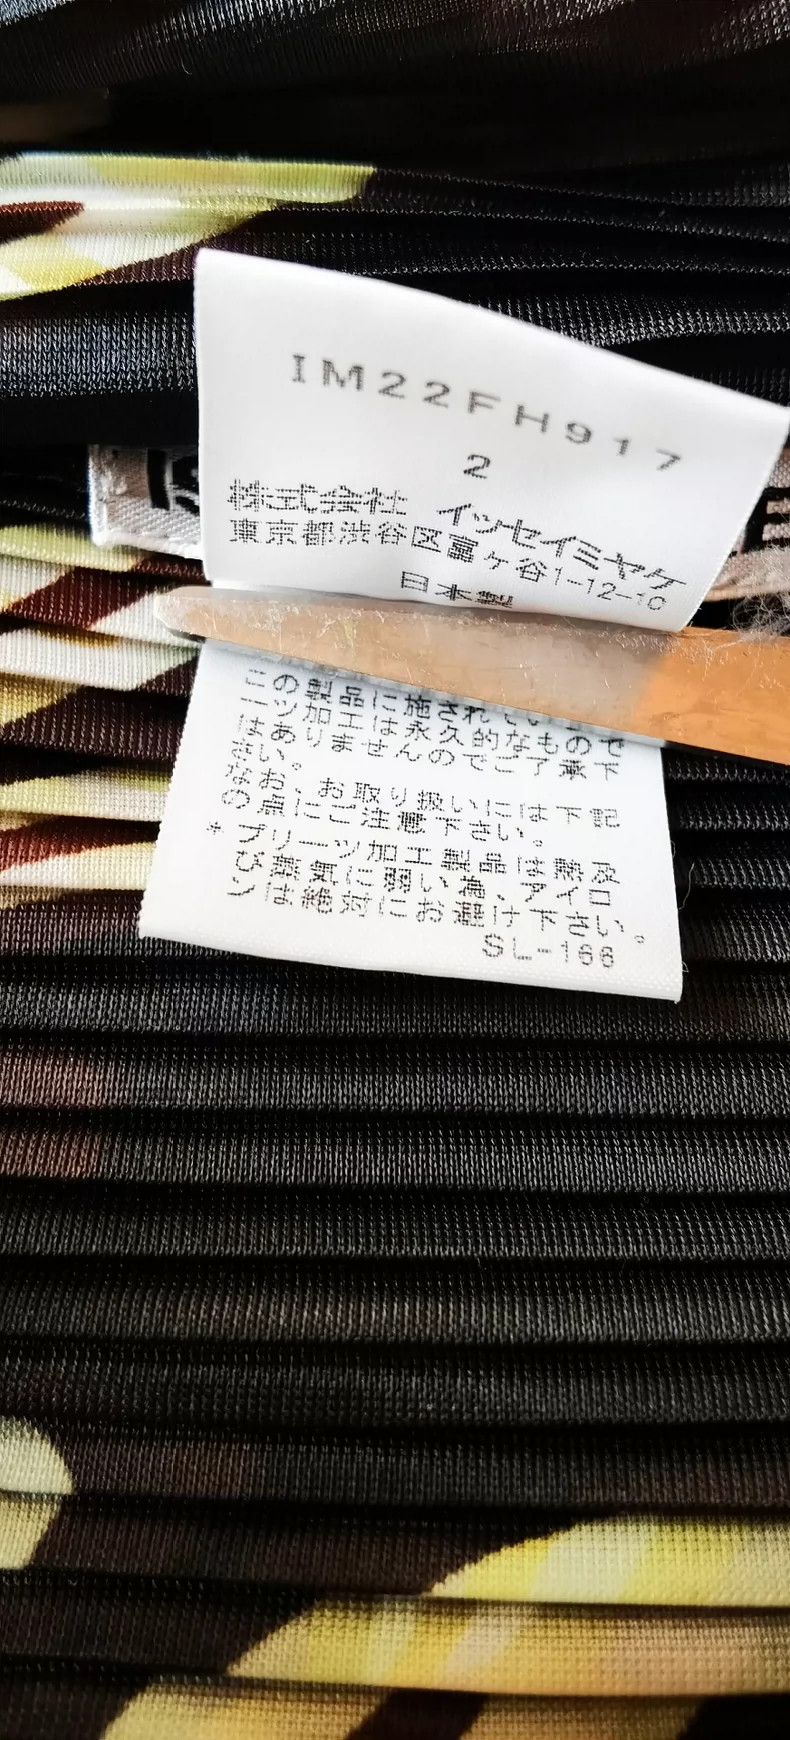 IM22FH917
2
株式会社 イッセイミヤケ
東京都渋谷区富ヶ谷1-12-10
日本製
この製品に施されて
ーツ加工は永久的なもので
はありませんのでご了承下
さい。
なお、お取り扱いには下記
の点にご注意下さい。
*プリーツ加工製品は熱及
び蒸気に弱い為、アイロ
ンは絶対にお避け下さい。
SL-166